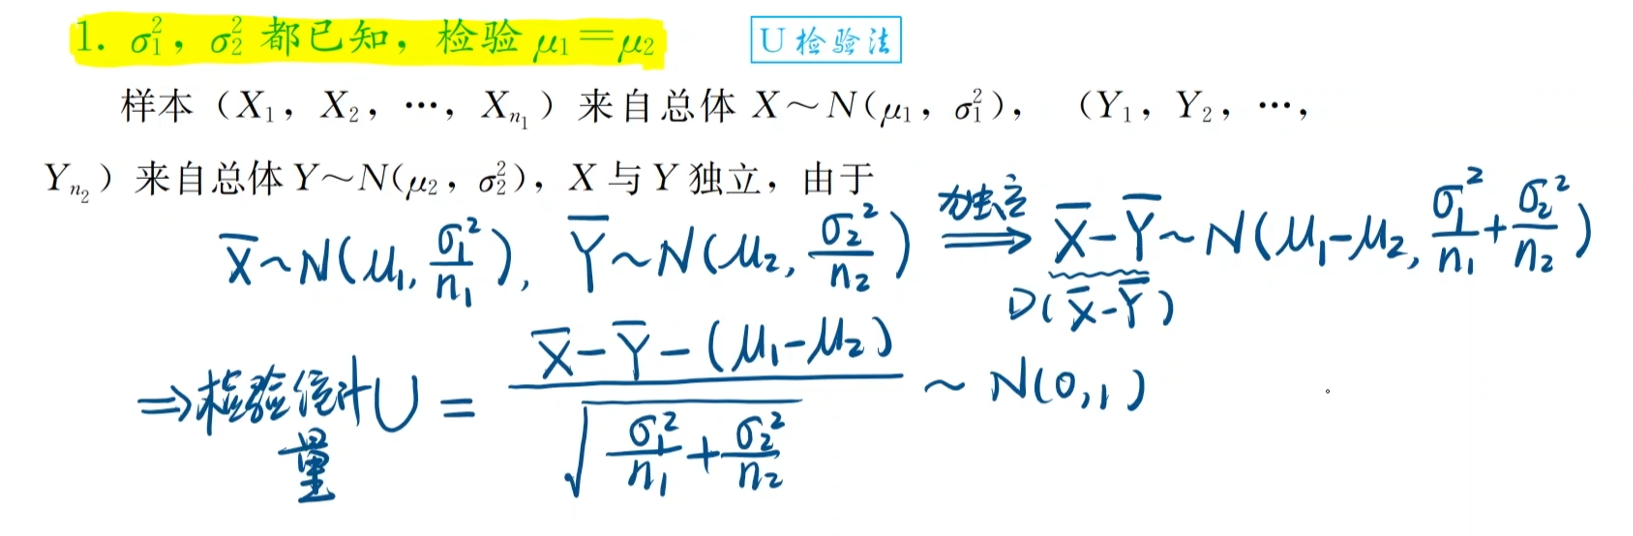 1. σ₁², σ₂² 都已知，检验 μ₁＝μ₂ U 检验法
样本（X₁，X₂，…，Xₙ₁）来自总体 X～N(μ₁，σ₁²)，（Y₁，Y₂，…，
Yₙ₂）来自总体 Y～N(μ₂，σ₂²)，X 与 Y 独立，由于
X̄~N(μ₁, σ₁²/n₁), Ȳ~N(μ₂, σ₂²/n₂) 独立 ⟹ X̄-Ȳ~N(μ₁-μ₂, σ₁²/n₁+σ₂²/n₂)
D(X̄-Ȳ)
⇒检验统计量 U = (X̄-Ȳ-(μ₁-μ₂))/√(σ₁²/n₁+σ₂²/n₂) ~ N(0,1)